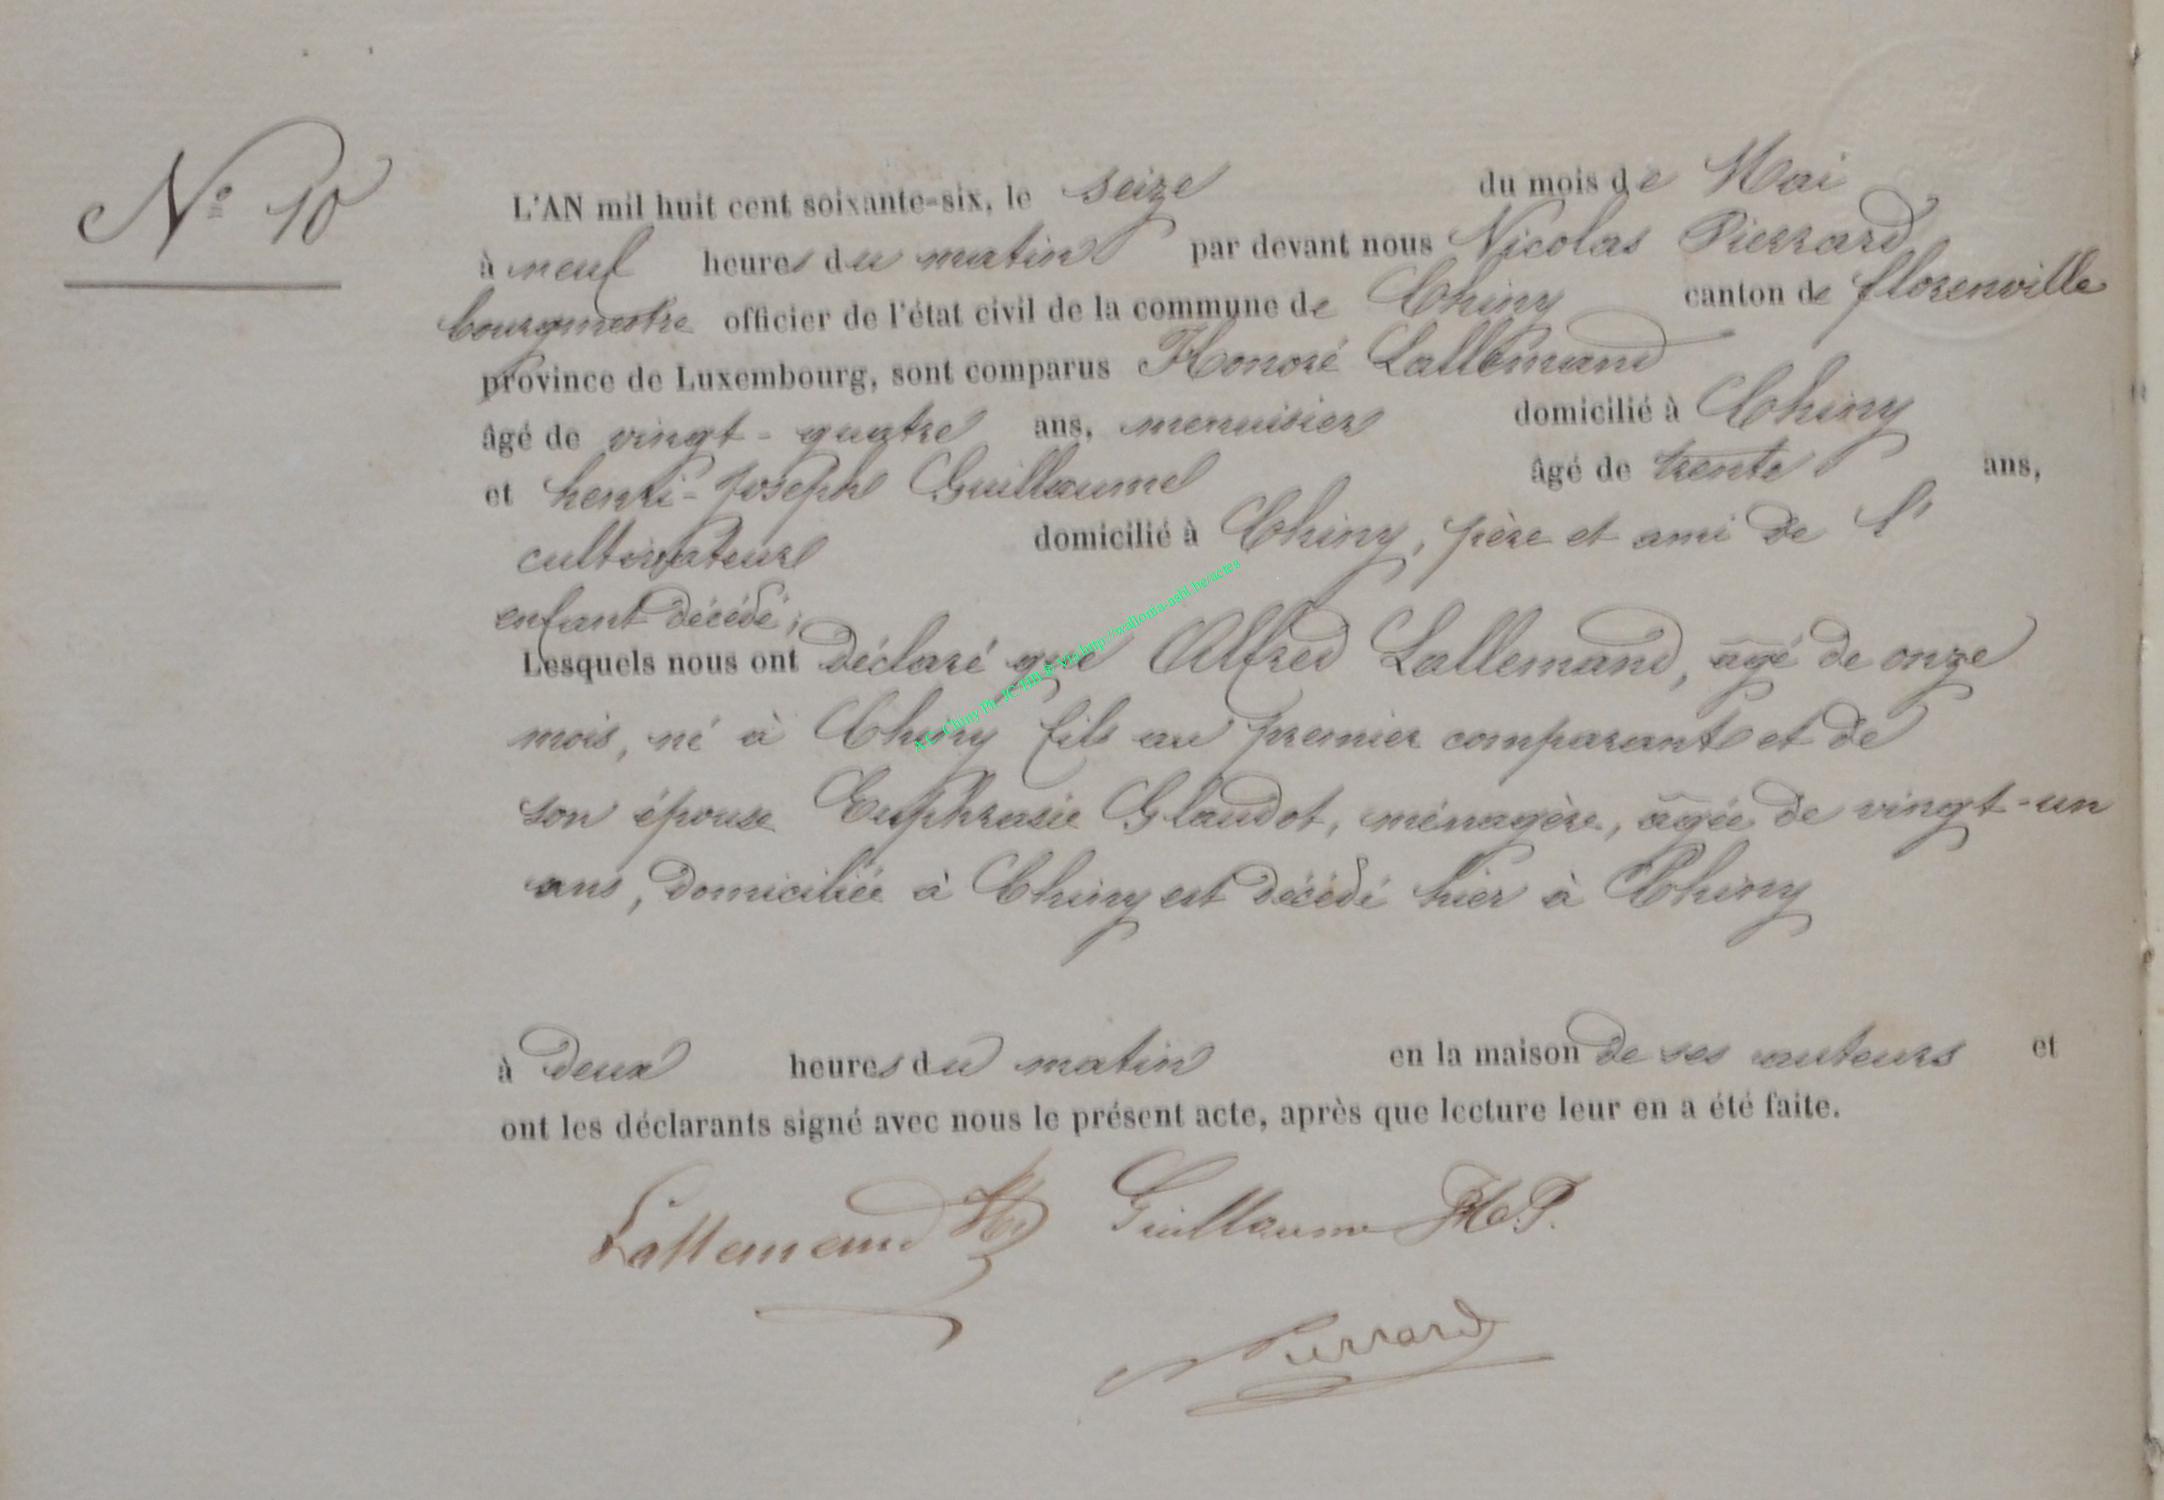 N° 10
L'AN mil huit cent soixante-six, le seize du mois de Mai
à neuf heures du matin par devant nous Nicolas Pierrard
bourgmestre officier de l'état civil de la commune de Chiny canton de florenville
province de Luxembourg, sont comparus Honoré Lallemand
âgé de vingt-quatre ans, menuisier domicilié à Chiny
et henri-Joseph Guillaume âgé de trente ans,
cultivateur domicilié à Chiny, père et ami de l'
enfant décédé;
Lesquels nous ont déclaré que Alfred Lallemand, âgé de onze
mois, né à Chiny fils au premier comparant et de
son épouse Euphrasie Glaudot, ménagère, âgée de vingt-un
ans, domiciliée à Chiny est décédé hier à Chiny
à deux heures du matin en la maison de ses auteurs et
ont les déclarants signé avec nous le présent acte, après que lecture leur en a été faite.
Lallemand Guillaume
Pierrard